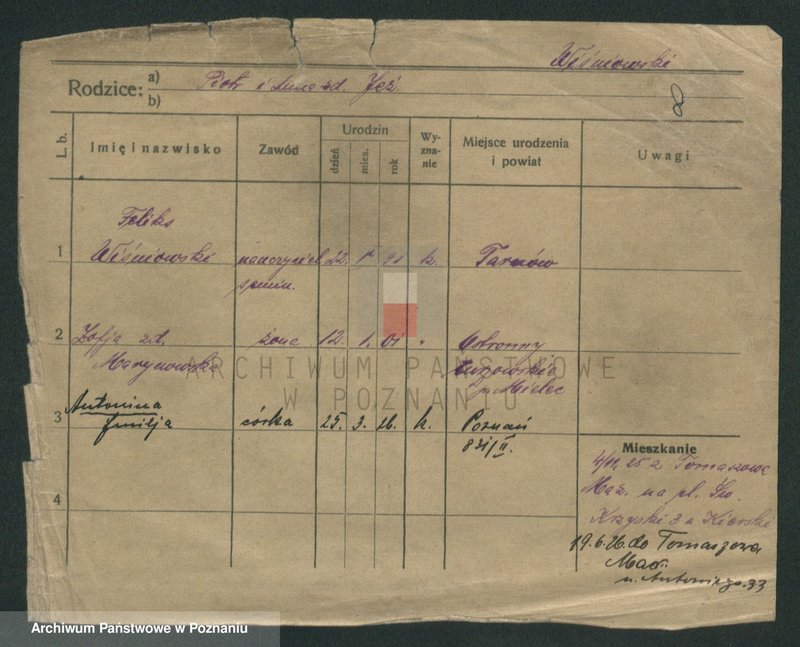 Wiśniowski
Rodzice: a) Piotr i zd. Jeż
b)
8
L. b.
Imię i nazwisko
Zawód
Urodzin
dzień
mies.
rok
Wyznanie
Miejsce urodzenia i powiat
Uwagi
1 Feliks
Wiśniowski nauczyciel 22. 91 k. Tarnów
semin.
2 Zofja zd. żona 12. 1. 01 " Ostrowy
Marynowska Tuszowskie
p. Mielec
3 Antonina
Emilja córka 25. 3. 26. k. Poznań
831/II.
4
Mieszkanie
25 z Tomaszowa
Maz. na pl. Św.
Krzyski 3 u
19.6.26. do Tomaszowa
Maz.
u. Antoniego 33
ARCHIWUM PAŃSTWOWE
W POZNANIU
Archiwum Państwowe w Poznaniu